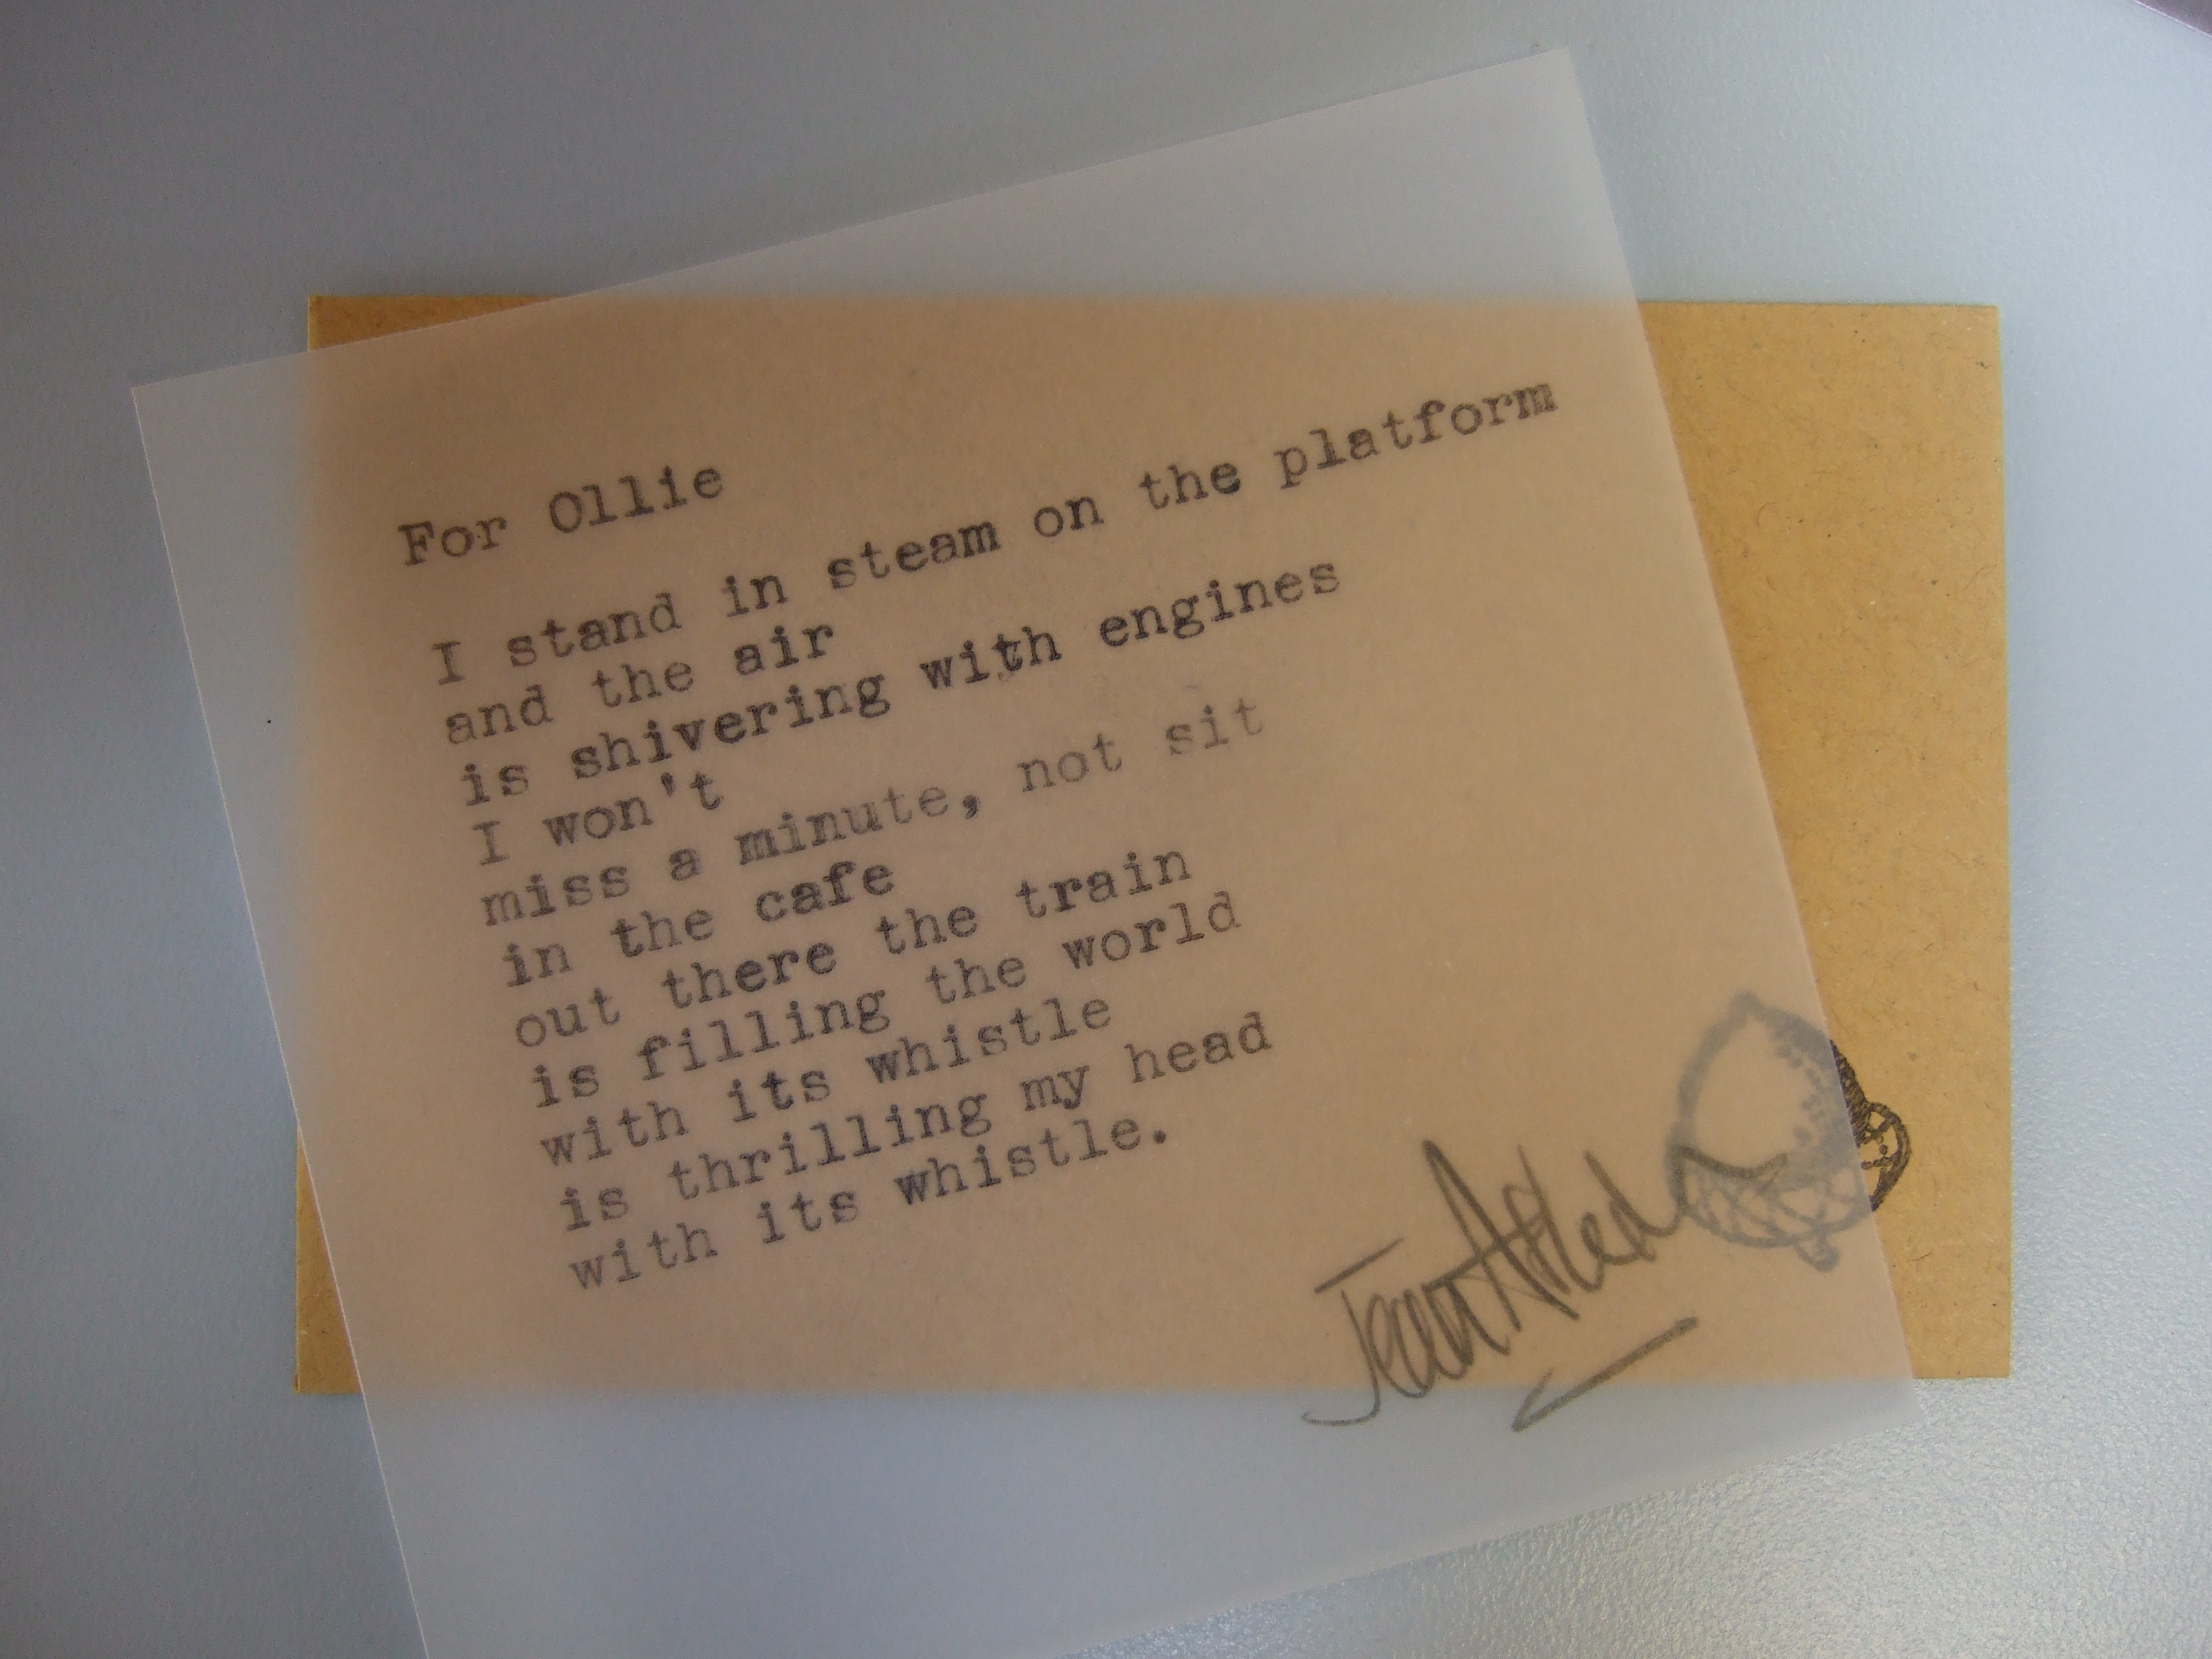 For Ollie
I stand in steam on the platform
and the air
is shivering with engines
I won't
miss a minute, not sit
in the cafe
out there the train
is filling the world
with its whistle
is thrilling my head
with its whistle.
Jean Atkin